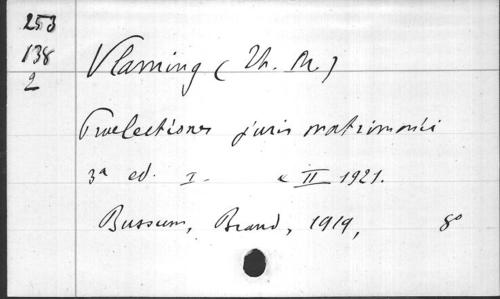 253
138
2
Vlaming (Th. M.)
Praelectiones juris matrimonii
3a ed. I - « II 1921.
Bussum, Brand, 1919, 8°